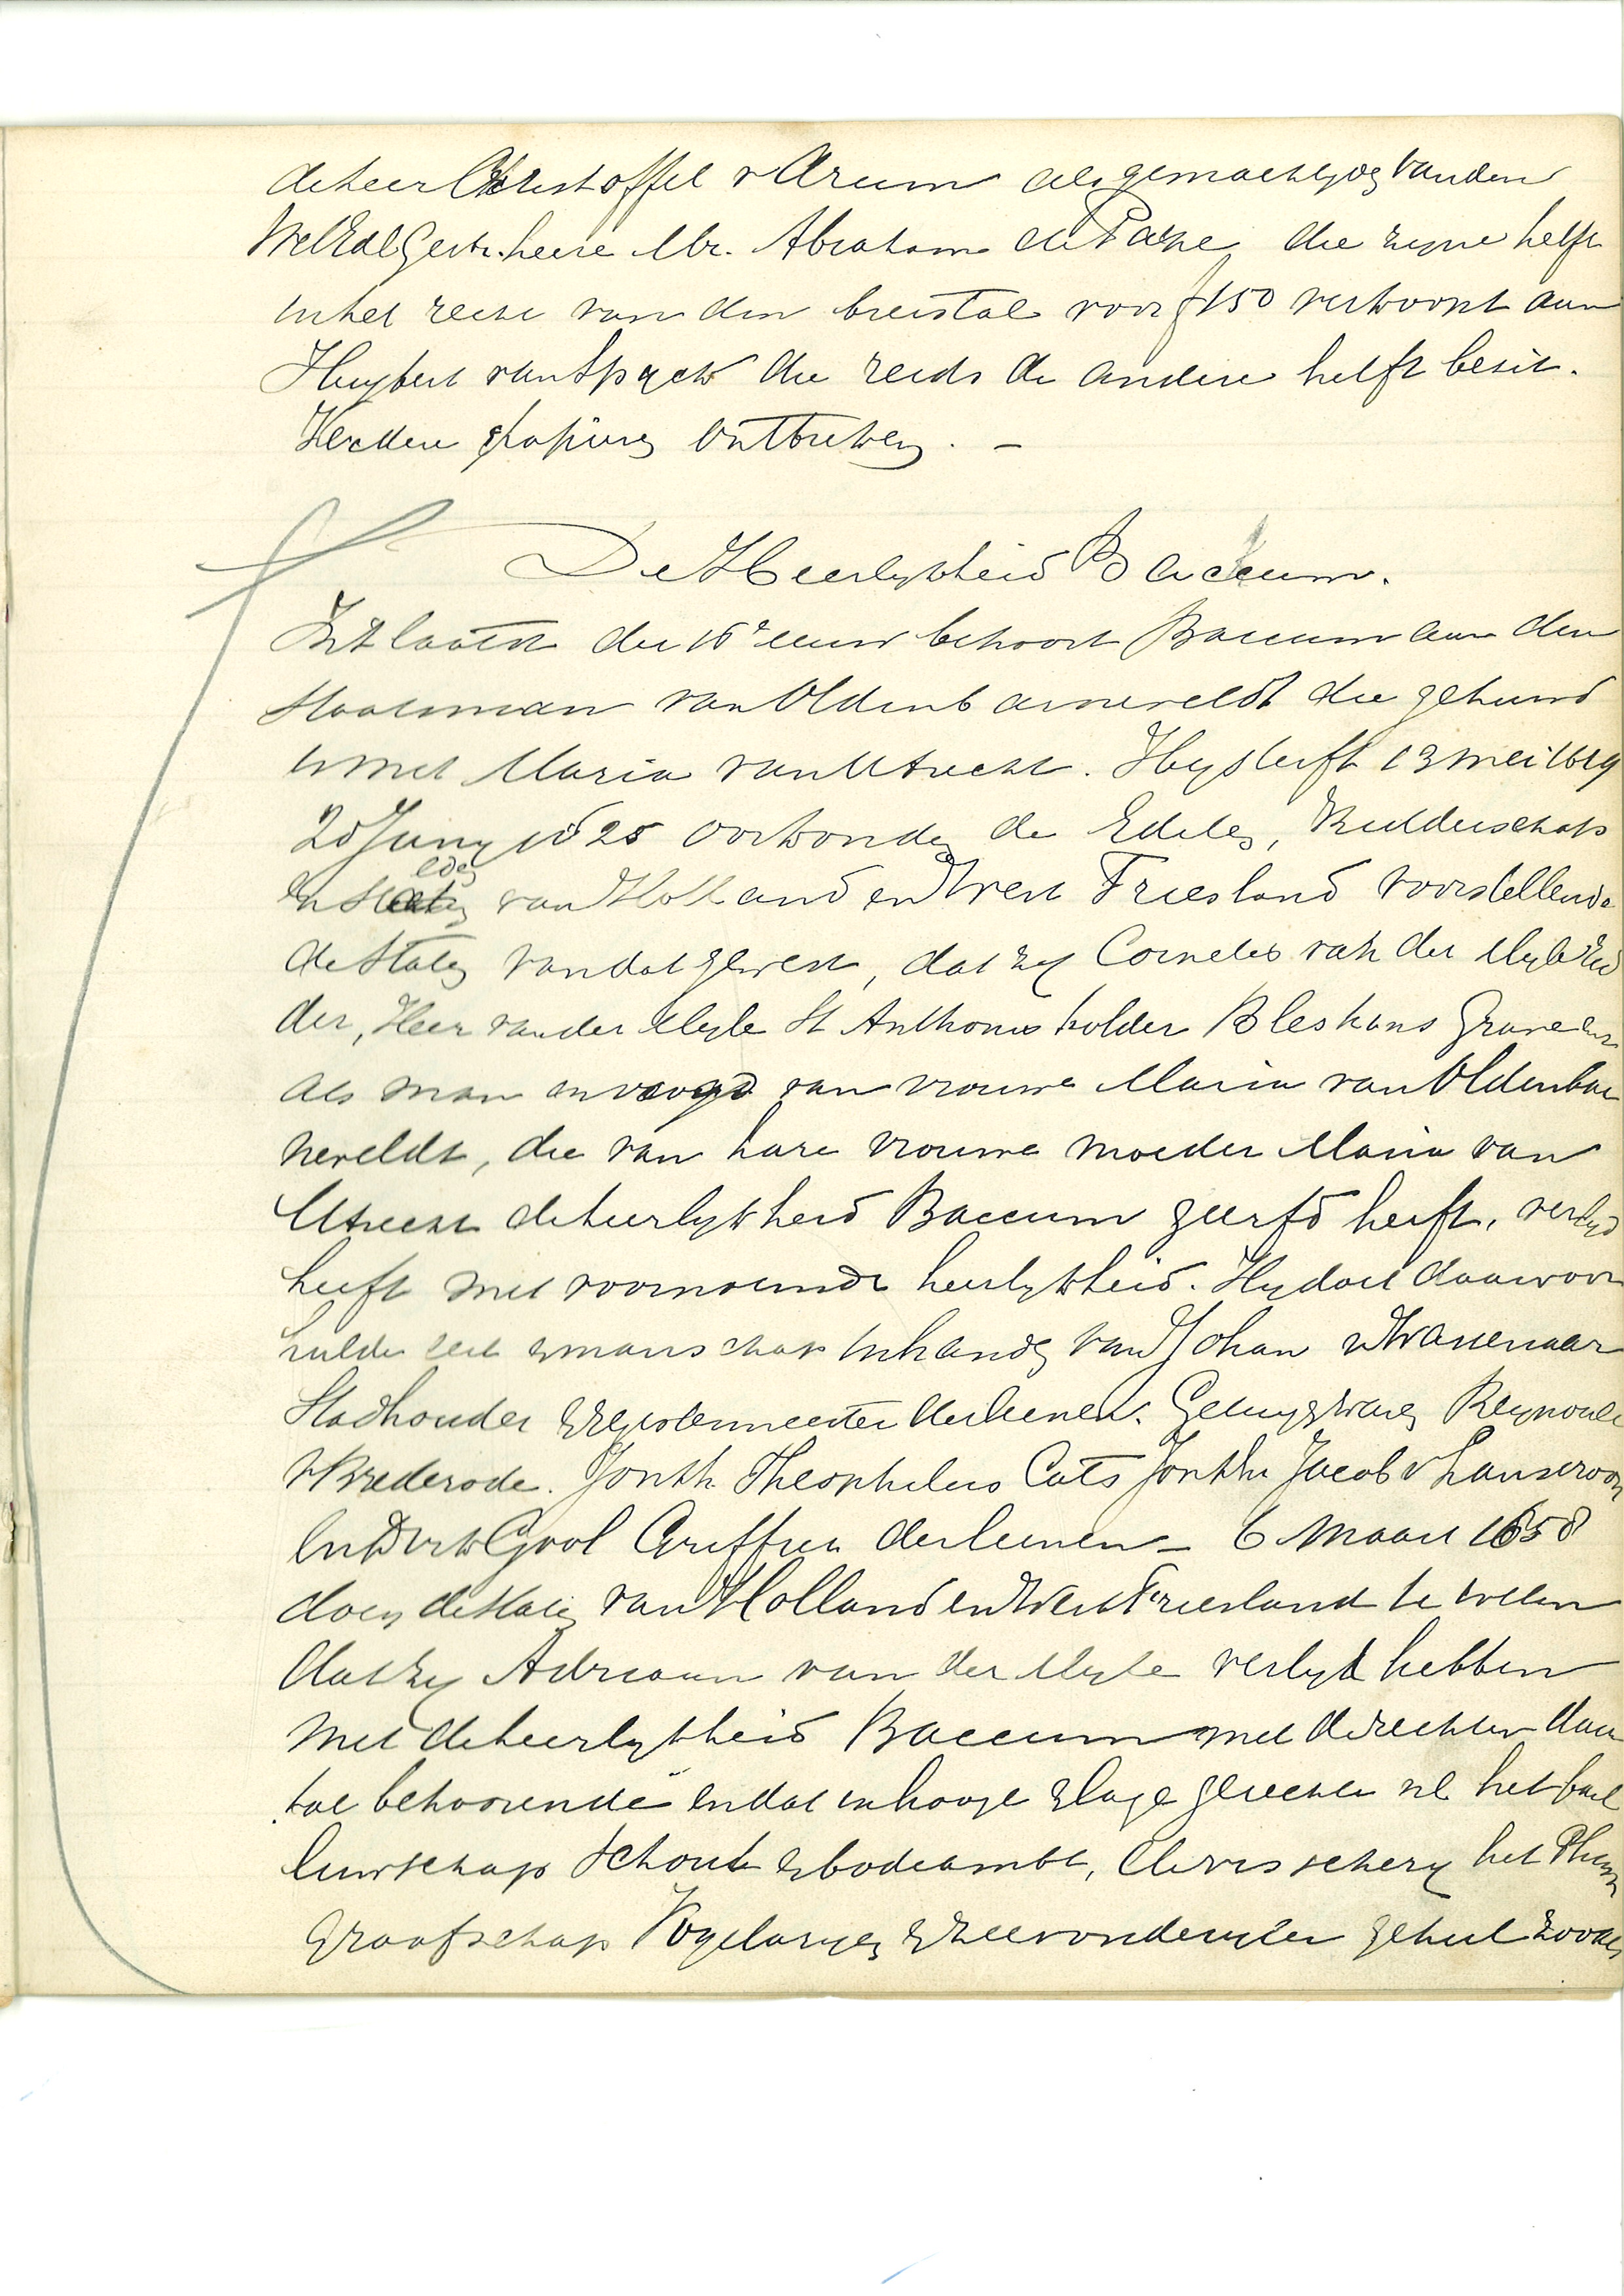 de heer Christoffel v Arum als gemachtigde van den
WelEdlGestr. heere Mr. Abraham de Paepe die zijne helft
in het recht van den biertol voor f 150 verkoopt aan
Huybert van Spyck die reeds de andere helft bezit.
Verdere papieren ontbreken. —
De Heerlykheid Baccum.
In 't laatst der 16e eeuw behoort Baccum aan den
staatsman van Oldenbarneveldt die gehuwd
is met Maria van Utrecht. Hy sterft 13 mei 1619
20 Juny 1625 oorkonden de Edelen, Ridderschap
en steden van Holland en West Friesland voorstellende
de Staten van dat gewest, dat zy Cornelis van der Myle Rid
der, Heer van der Myle St Anthonis polder Bleskens Grave enz
als man en voogd van vrouwe Maria van Oldenbar
neveldt, die van hare vrouwe moeder Maria van
Utrecht de heerlykheid Baccum geerfd heeft, verlyd
heeft met voornoemde heerlykheid. Hy doet daarvoor
hulde eed & manschap in handen van Johan v Wassenaar
Stadhouder & Registermeester der leenen. Getuigen waren Reynout
v Brederode. Jonkh. Theophilus Cats Jonkhr Jacob v
en Dirk Gool Griffier der leenen — 6 Maart 1658
doen de Staten van Holland en West Friesland te weten
dat zy Adriaan van der Myle verlyd hebben
met de heerlykheid Baccum met de rechten daar
toe behoorende en dat in hooge & lage gerechte nl het bail
luwschap schout & bodeambt, de visschery het Pluim
graafschap Vogelaryen & zeevonderyen geheel zooals